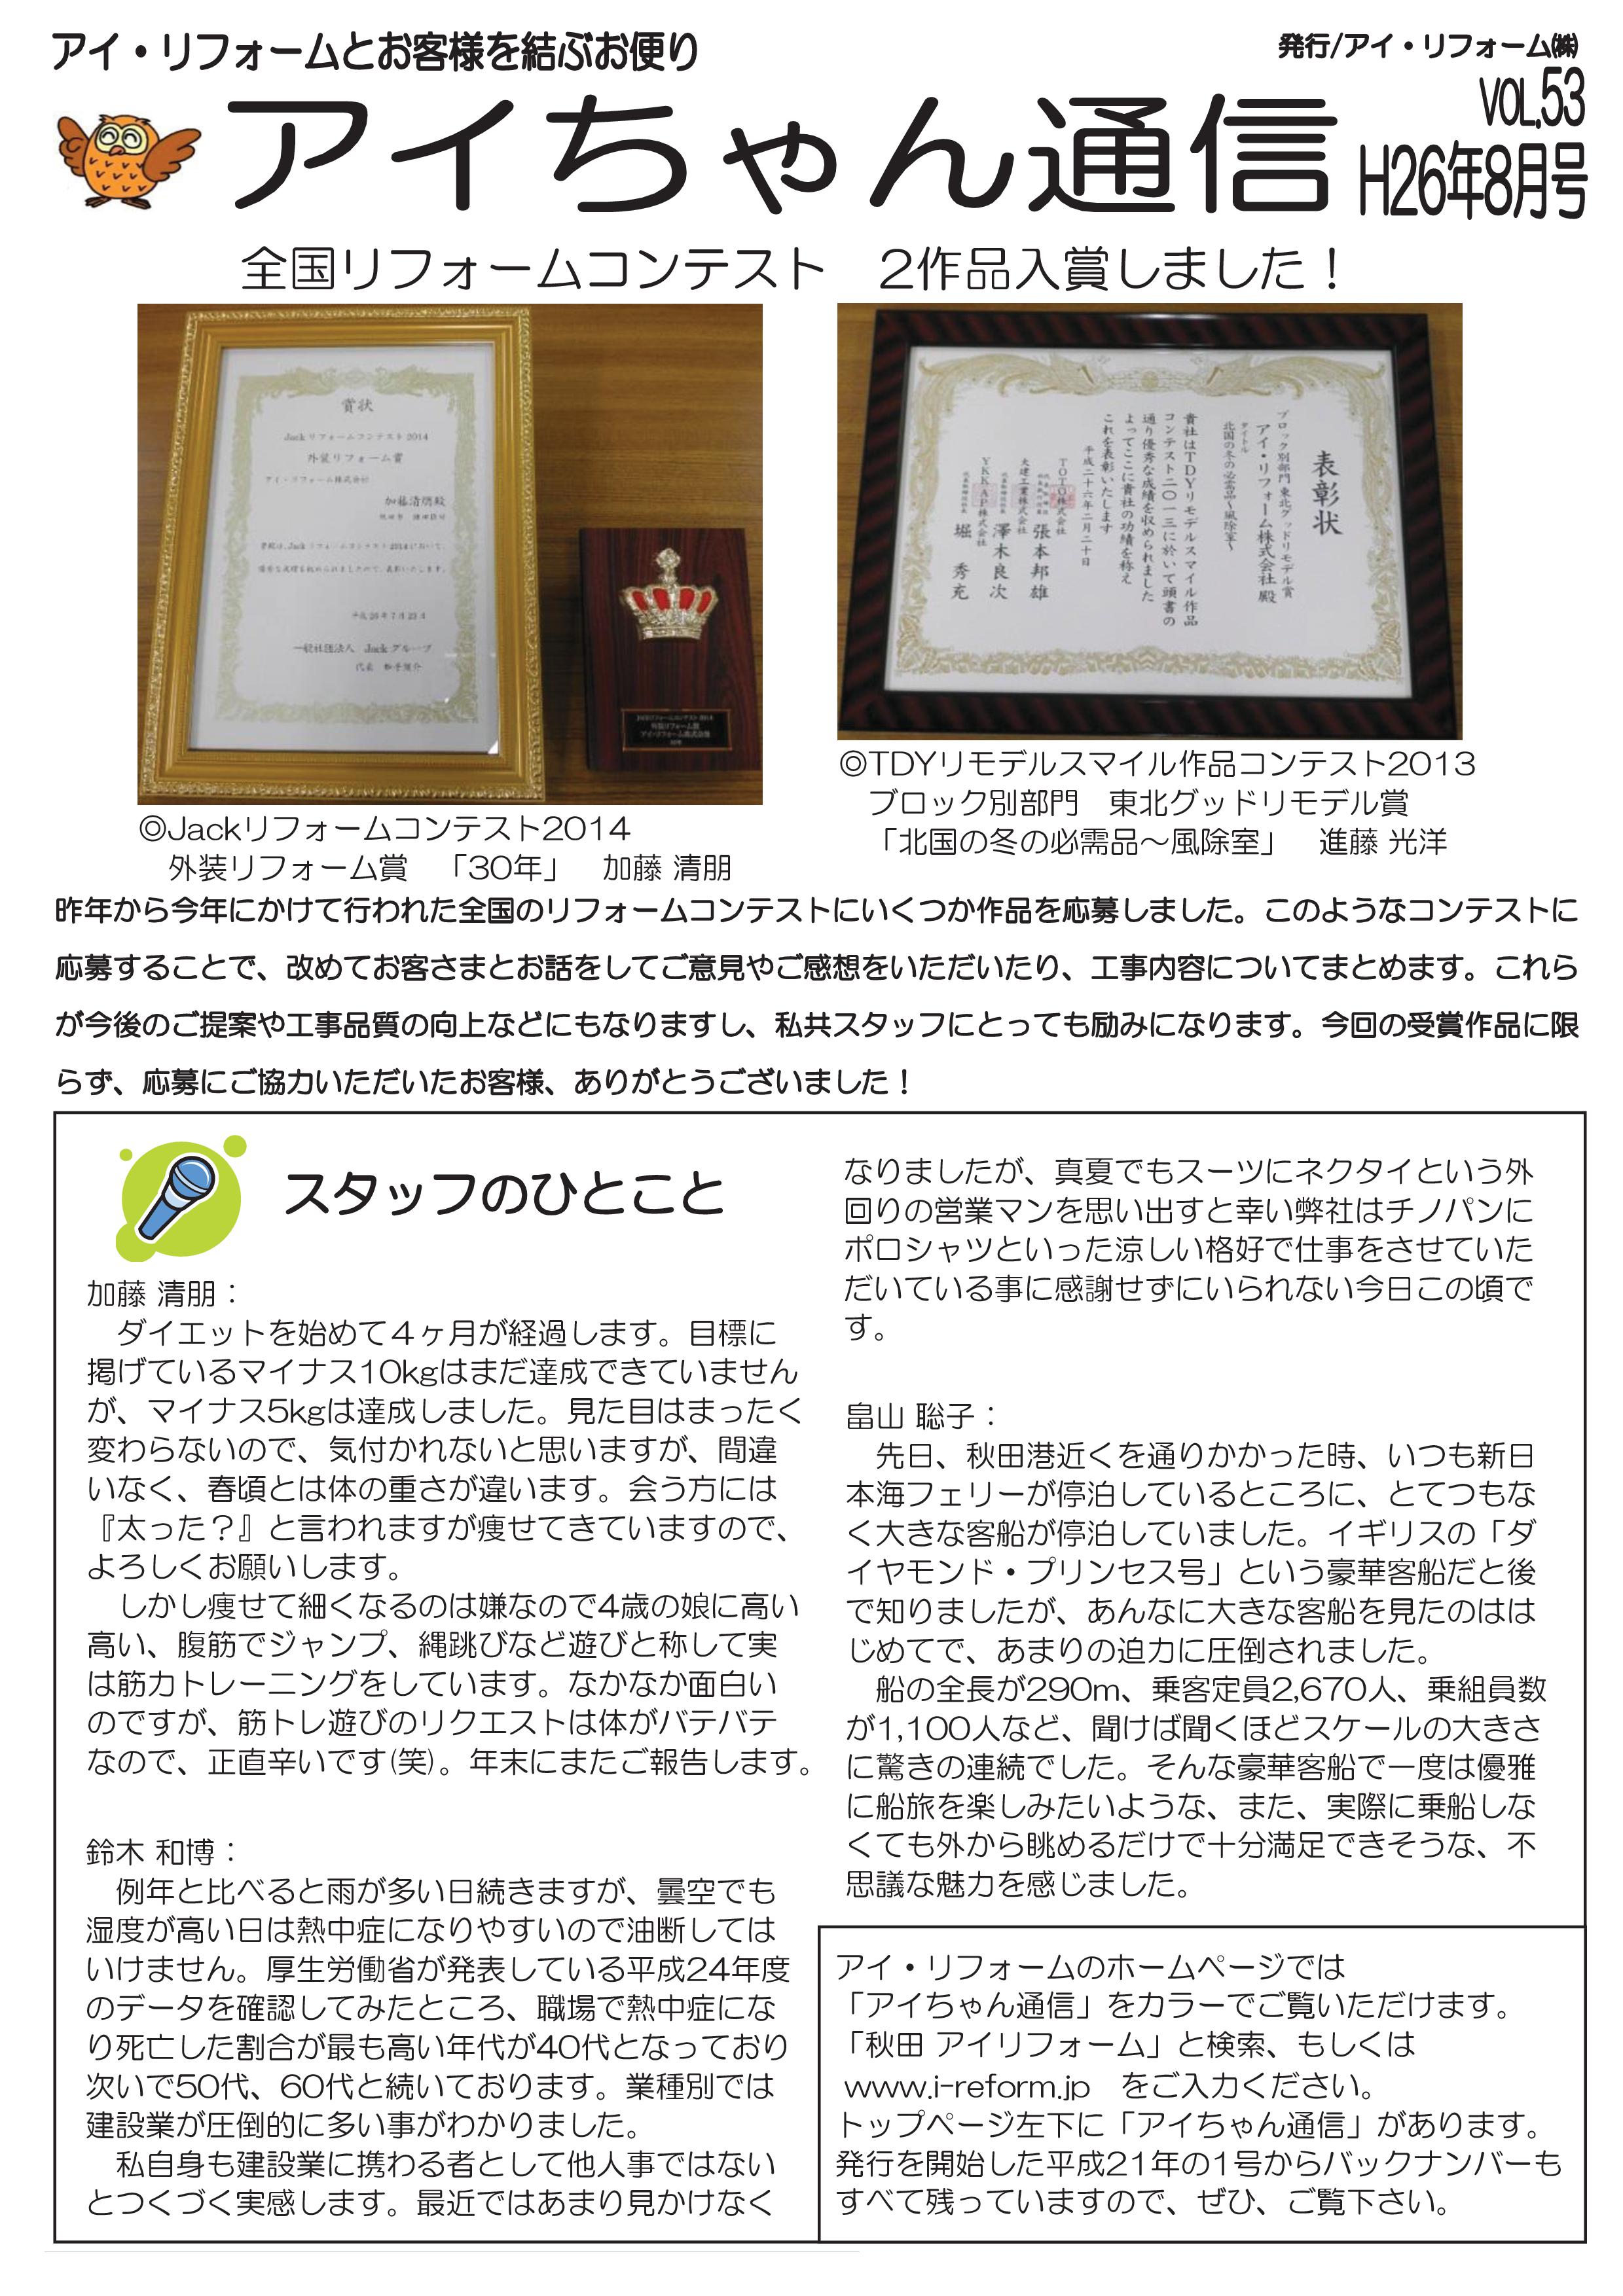 アイ・リフォームとお客様を結ぶお便り
発行/アイ・リフォーム㈱
アイちゃん通信
VOL.53
H26年8月号
全国リフォームコンテスト　2作品入賞しました！
賞状
Jackリフォームコンテスト2014
外装リフォーム賞
アイ・リフォーム株式会社
加藤清朋殿
平成26年7月23日
一般社団法人　Jackグループ
表彰状
ブロック別部門 東北グッドリモデル賞
アイ・リフォーム株式会社 殿
タイトル
北国の冬の必需品～風除室～
貴社はTDYリモデルスマイル作品
コンテスト二〇一三に於いて頭書の
通り優秀な成績を収められました
よってここに貴社の功績を称え
これを表彰いたします
平成二十六年二月二十日
TOTO株式会社
張本邦雄
大建工業株式会社
澤木良次
YKK AP株式会社
堀 秀充
◎Jackリフォームコンテスト2014
外装リフォーム賞　「30年」　加藤 清朋
◎TDYリモデルスマイル作品コンテスト2013
ブロック別部門　東北グッドリモデル賞
「北国の冬の必需品～風除室」　進藤 光洋
昨年から今年にかけて行われた全国のリフォームコンテストにいくつか作品を応募しました。このようなコンテストに
応募することで、改めてお客さまとお話をしてご意見やご感想をいただいたり、工事内容についてまとめます。これら
が今後のご提案や工事品質の向上などにもなりますし、私共スタッフにとっても励みになります。今回の受賞作品に限
らず、応募にご協力いただいたお客様、ありがとうございました！
スタッフのひとこと
加藤 清朋：
ダイエットを始めて４ヶ月が経過します。目標に
掲げているマイナス10kgはまだ達成できていません
が、マイナス5kgは達成しました。見た目はまったく
変わらないので、気付かれないと思いますが、間違
いなく、春頃とは体の重さが違います。会う方には
『太った？』と言われますが痩せてきていますので、
よろしくお願いします。
しかし痩せて細くなるのは嫌なので4歳の娘に高い
高い、腹筋でジャンプ、縄跳びなど遊びと称して実
は筋力トレーニングをしています。なかなか面白い
のですが、筋トレ遊びのリクエストは体がバテバテ
なので、正直辛いです(笑)。年末にまたご報告します。
鈴木 和博：
例年と比べると雨が多い日続きますが、曇空でも
湿度が高い日は熱中症になりやすいので油断しては
いけません。厚生労働省が発表している平成24年度
のデータを確認してみたところ、職場で熱中症にな
り死亡した割合が最も高い年代が40代となっており
次いで50代、60代と続いております。業種別では
建設業が圧倒的に多い事がわかりました。
私自身も建設業に携わる者として他人事ではない
とつくづく実感します。最近ではあまり見かけなく
なりましたが、真夏でもスーツにネクタイという外
回りの営業マンを思い出すと幸い弊社はチノパンに
ポロシャツといった涼しい格好で仕事をさせていた
だいている事に感謝せずにいられない今日この頃で
す。
畠山 聡子：
先日、秋田港近くを通りかかった時、いつも新日
本海フェリーが停泊しているところに、とてつもな
く大きな客船が停泊していました。イギリスの「ダ
イヤモンド・プリンセス号」という豪華客船だと後
で知りましたが、あんなに大きな客船を見たのはは
じめてで、あまりの迫力に圧倒されました。
船の全長が290m、乗客定員2,670人、乗組員数
が1,100人など、聞けば聞くほどスケールの大きさ
に驚きの連続でした。そんな豪華客船で一度は優雅
に船旅を楽しみたいような、また、実際に乗船しな
くても外から眺めるだけで十分満足できそうな、不
思議な魅力を感じました。
アイ・リフォームのホームページでは
「アイちゃん通信」をカラーでご覧いただけます。
「秋田 アイリフォーム」と検索、もしくは
www.i-reform.jp　をご入力ください。
トップページ左下に「アイちゃん通信」があります。
発行を開始した平成21年の1号からバックナンバーも
すべて残っていますので、ぜひ、ご覧下さい。